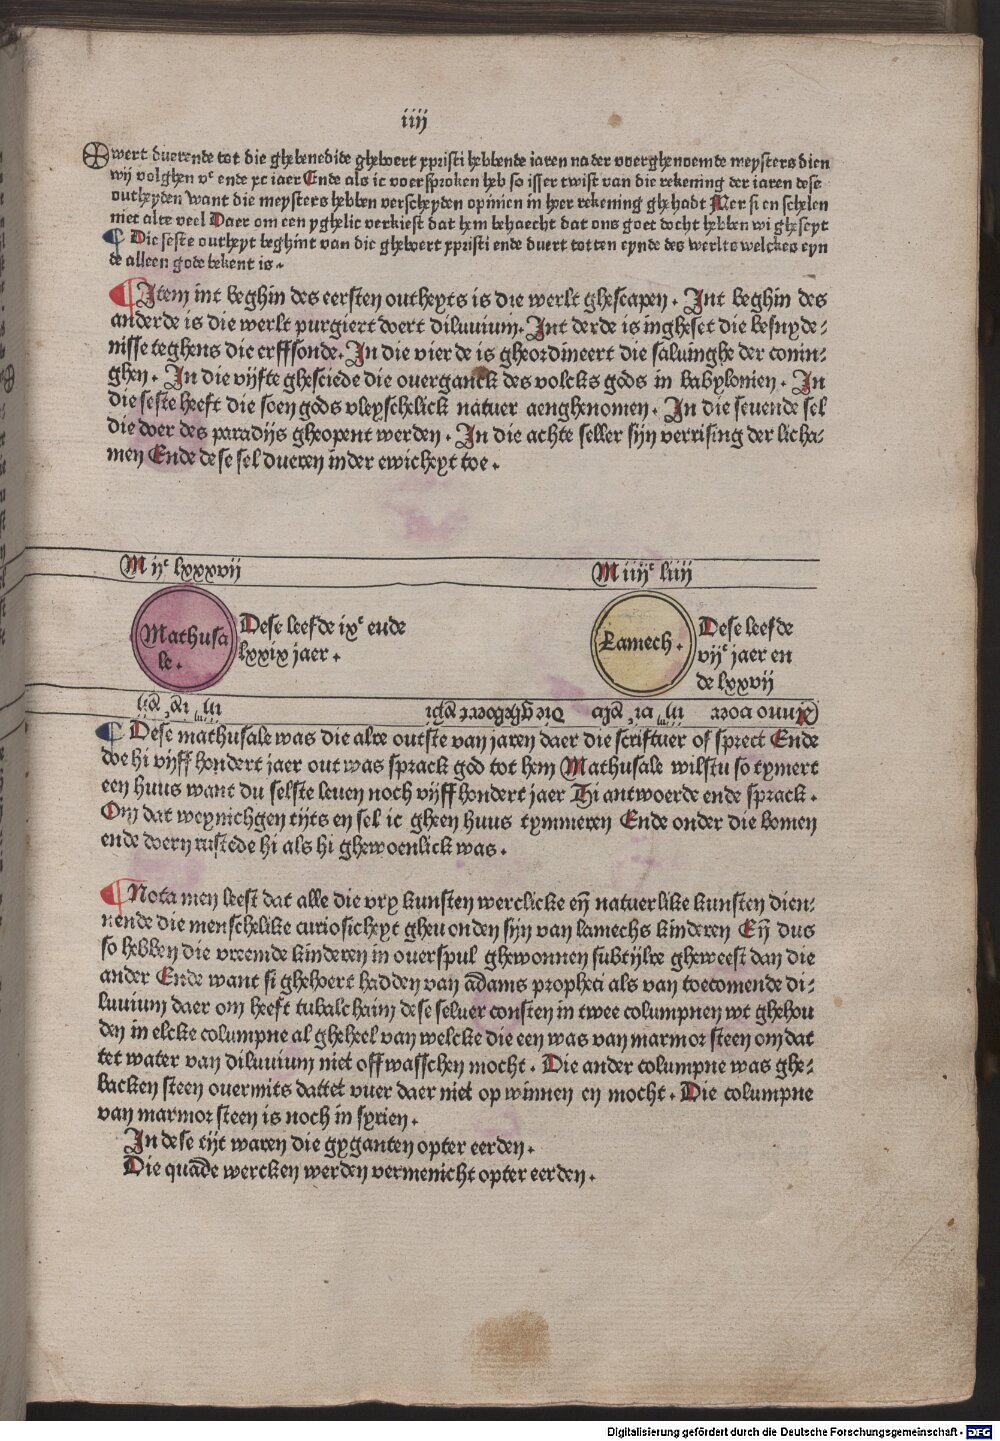 iiij
wert duerende tot die ghebenedide gheboert xpristi hebbende iaren na der voerghenoemde meysters dien
wij volghen vᶜ ende xc iaer Ende als ic voer sproken heb so isser twist van die rekening der iaren dese
outheyden want die meysters hebben verscheyden opinien in hoer rekening ghehadt Mer si en schelen
niet alte veel Daer om een yghelic verkiest dat hem behaecht dat ons goet docht hebben wi gheseyt
¶ Die seste outheyt beghint van die gheboert xpristi ende duert totten eynde des werlts welckes eyn
de alleen gode bekent is.
¶ Item int beghin des eersten outheyts is die werlt ghescapen. Int beghin des
anderde is die werlt purgiert doert diluuium. Int derde is ingheset die besnyde⸗
nisse teghens die erffsonde. In die vierde is gheordineert die saluinghe der conin⸗
ghen. In die vijfte ghesciede die ouerganck des volcks gods in babylonien. In
die seste heeft die soen gods vleyschelick natuer aenghenomen. In die seuende sel
die doer des paradijs gheopent werden. In die achte seller sijn verrising der licha⸗
men Ende dese sel dueren in der ewicheyt toe.
M ijᶜ lxxxvij
M iiijᶜ liiij
Mathusa
le.
Dese leefde ixᶜ ende
lxxix jaer.
Lamech.
Dese leefde
vijᶜ jaer en
de lxxvij
Anno voer die gheboert xpi
¶ Dese mathusale was die alre outste van jaren daer die scriftuer of sprect Ende
doe hi vijff hondert jaer out was sprack god tot hem Mathusale wilstu so tymert
een huus want du selste leuen noch vijff hondert jaer Hi antwoerde ende sprack.
Om dat weynichgen tijts en sel ic gheen huus tymmeren Ende onder die bomen
ende doern rustede hi als hi ghewoenlick was.
¶ Nota men leest dat alle die vry kunsten werclicke eñ natuerlike kunsten dien⸗
nende die menschelike curiosicheyt gheuonden sijn van lamechs kinderen Eñ dus
so hebben die vreemde kinderen in ouerspul ghewonnen subtijlre gheweest dan die
ander Ende want si ghehoert hadden van adams propheci als van toecomende di⸗
luuium daer om heeft tubalchaim dese seluer consten in twee columpnen wt ghehou
den in elcke columpne al gheheel van welcke die een was van marmor steen om dat
tet water van diluuium niet off wasschen mocht. Die ander columpne was ghe⸗
backen steen ouermits dattet vuer daer niet op winnen en mocht. Die columpne
van marmor steen is noch in syrien.
In dese tijt waren die gyganten opter eerden.
Die quade wercken werden vermenicht opter eerden.
Digitalisierung gefördert durch die Deutsche Forschungsgemeinschaft - DFG